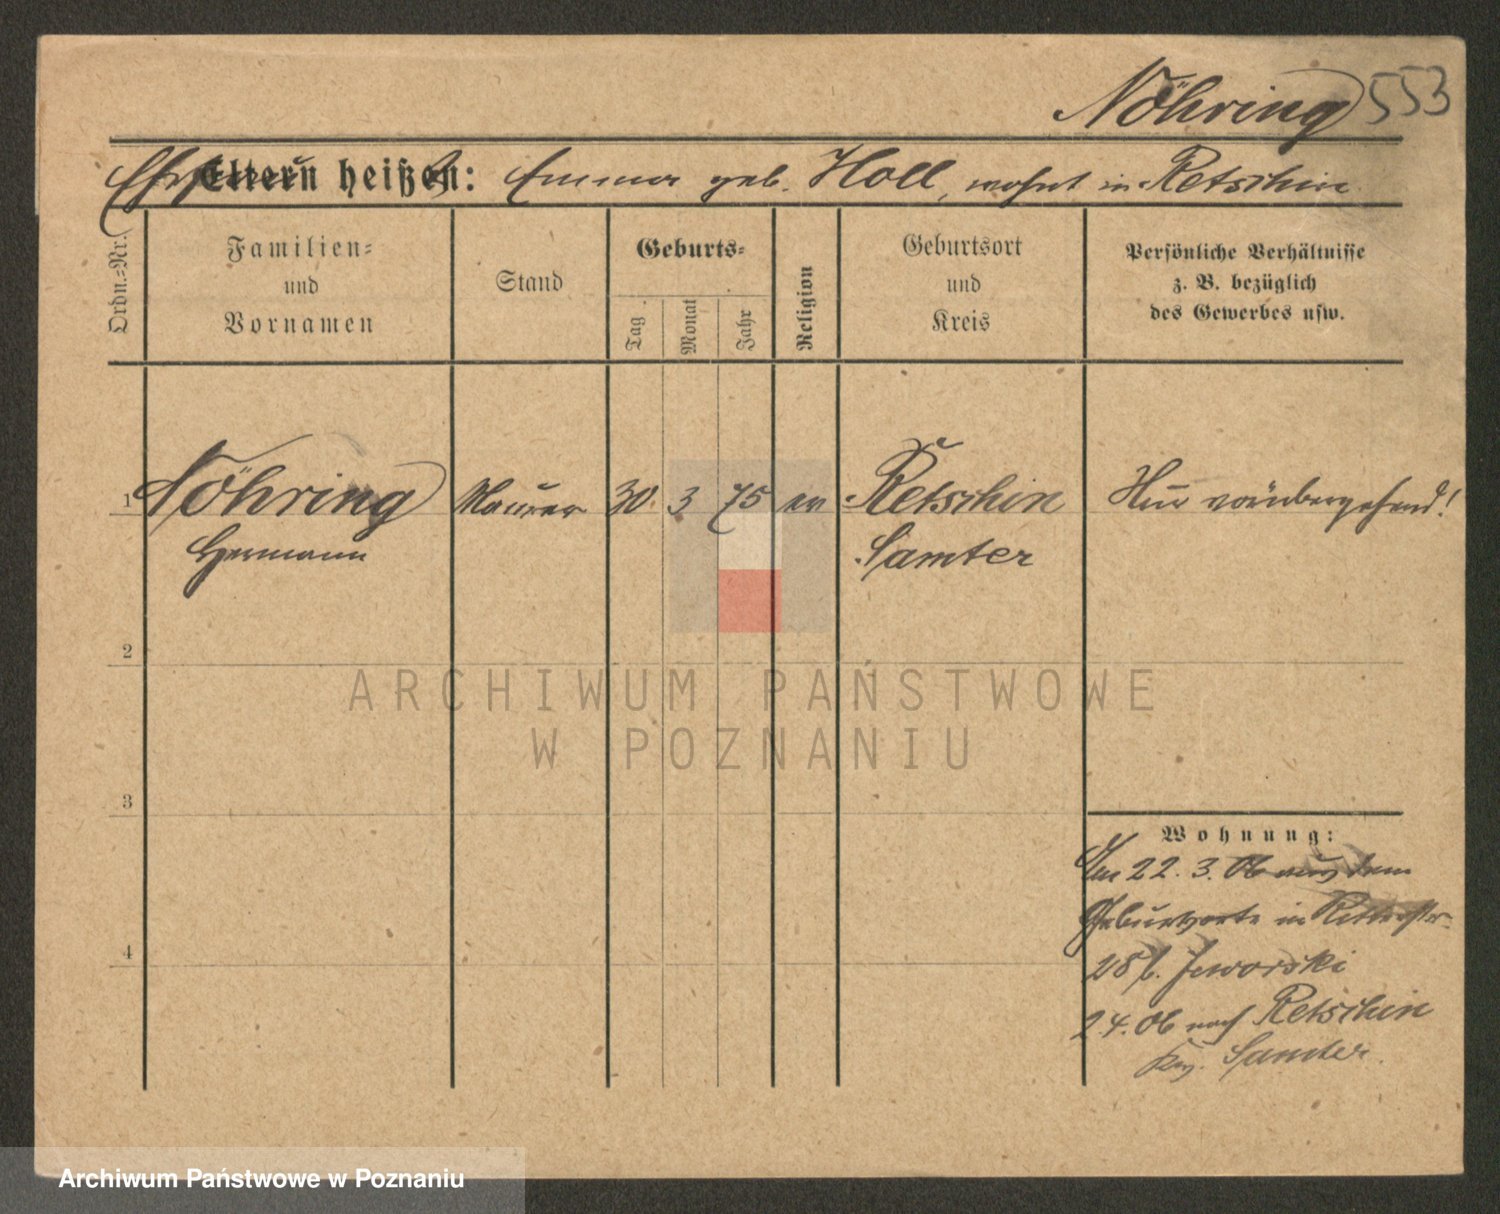 Nöhring 553
Ehefrau Eltern heißen: Emma geb. Noll, wohnt in Retschin
Ordn.=Nr.
Familien=
und
Vornamen
Stand
Geburts=
Tag
Monat
Jahr
Religion
Geburtsort
und
Kreis
Persönliche Verhältnisse
z. B. bezüglich
des Gewerbes usw.
1 Nöhring Maurer 30 3 75 ev Retschin Nur vorübergehend!
Hermann Samter
2
ARCHIWUM PAŃSTWOWE
W POZNANIU
3
Wohnung:
Am 22. 3. 06 aus dem
Geburtsorte in
28 b. Jeworski
2 4. 06 nach Retschin
Krs. Samter.
4
Archiwum Państwowe w Poznaniu